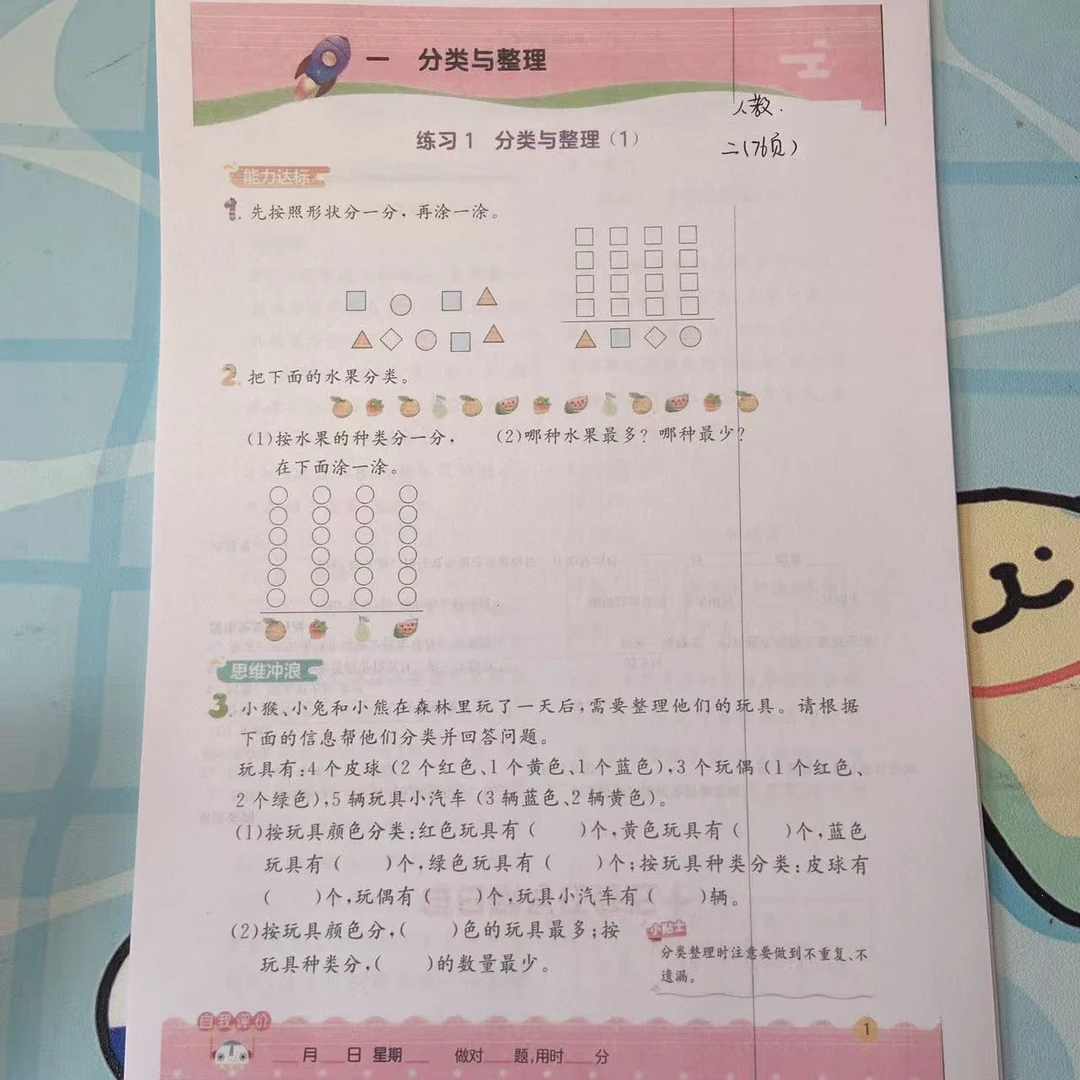 一 分类与整理
人教.
二(76页)
练习1 分类与整理(1)
能力达标
1. 先按照形状分一分,再涂一涂。
2. 把下面的水果分类。
(1)按水果的种类分一分, (2)哪种水果最多?哪种最少?
在下面涂一涂。
思维冲浪
3. 小猴、小兔和小熊在森林里玩了一天后,需要整理他们的玩具。请根据
下面的信息帮他们分类并回答问题。
玩具有:4个皮球(2个红色、1个黄色、1个蓝色),3个玩偶(1个红色、
2个绿色),5辆玩具小汽车(3辆蓝色、2辆黄色)。
(1)按玩具颜色分类:红色玩具有( )个,黄色玩具有( )个,蓝色
玩具有( )个,绿色玩具有( )个;按玩具种类分类:皮球有
( )个,玩偶有( )个,玩具小汽车有( )辆。
(2)按玩具颜色分,( )色的玩具最多;按
玩具种类分,( )的数量最少。
小贴士
分类整理时注意要做到不重复、不
遗漏。
自我评价
1
月 日 星期 做对 题,用时 分